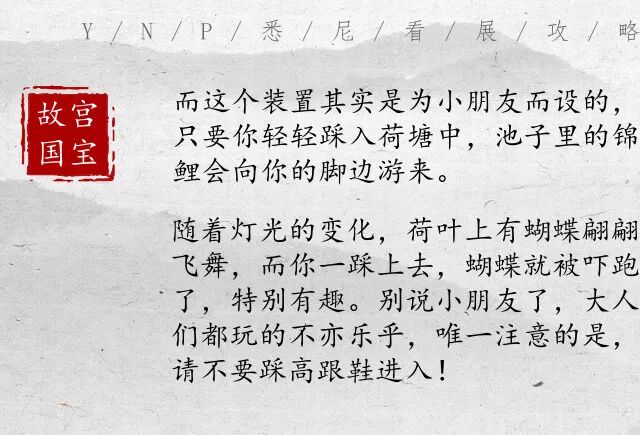 Y/N/P/悉/尼/看/展/攻/略
故宫
国宝
而这个装置其实是为小朋友而设的，
只要你轻轻踩入荷塘中，池子里的锦
鲤会向你的脚边游来。
随着灯光的变化，荷叶上有蝴蝶翩翩
飞舞，而你一踩上去，蝴蝶就被吓跑
了，特别有趣。别说小朋友了，大人
们都玩的不亦乐乎，唯一注意的是，
请不要踩高跟鞋进入！